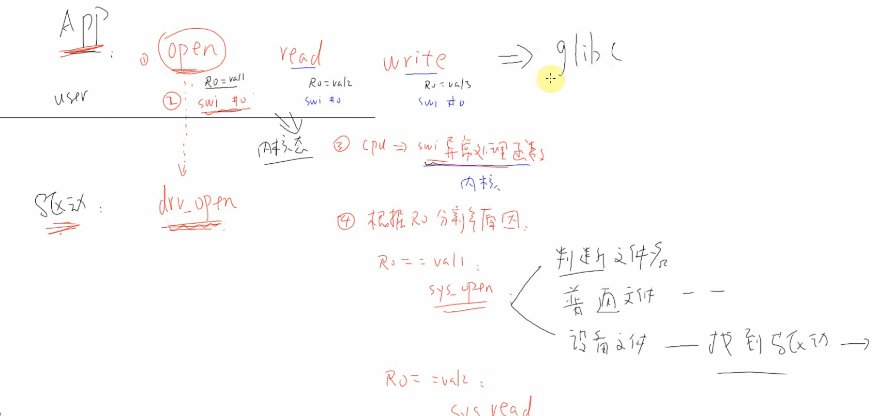 App:
① open read write ⇒ glibc
R0=val1 R0=val2 R0=val3
user ② swi #0 swi #0 swi #0
内核态 ③ cpu ⇒ swi 异常处理函数
内核
驱动: drv_open
④ 根据R0分辨原因.
R0==val1:
sys_open
判断文件
普通文件 — —
设备文件 — 找到驱动 →
R0==val2:
sys_read